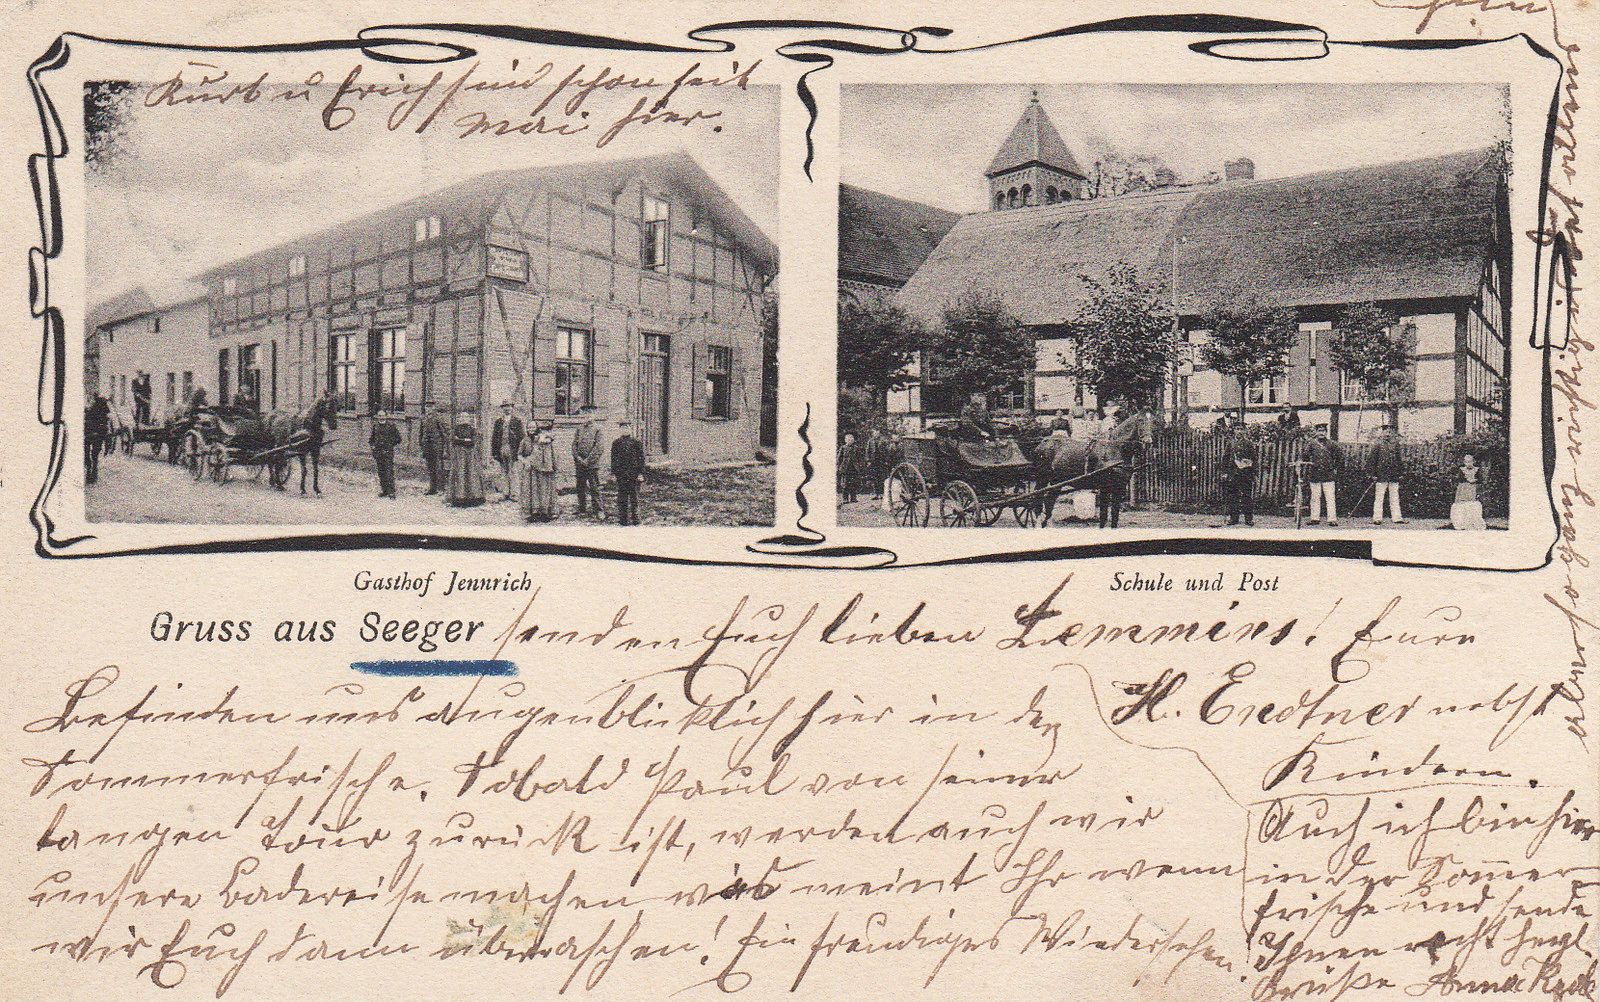 Kurt u Erich sind schon seit
Mai hier.
Gasthof Jennrich
Schule und Post
Gruss aus Seeger senden Euch lieben Lemmins! Eure
H. Endtner nebst
Kindern.
Befinden uns augenblicklich hier in der
Sommerfrische. Sobald Paul von seiner
langen Tour zurück ist, werden auch wir
unsere Badereise machen was meint Ihr wenn
wir Euch dann überraschen! Ein freudiges Wiedersehen!
Auch ich bin hier
in der Sommer
frische und sende
Ihnen recht herzl.
Grüße Anna